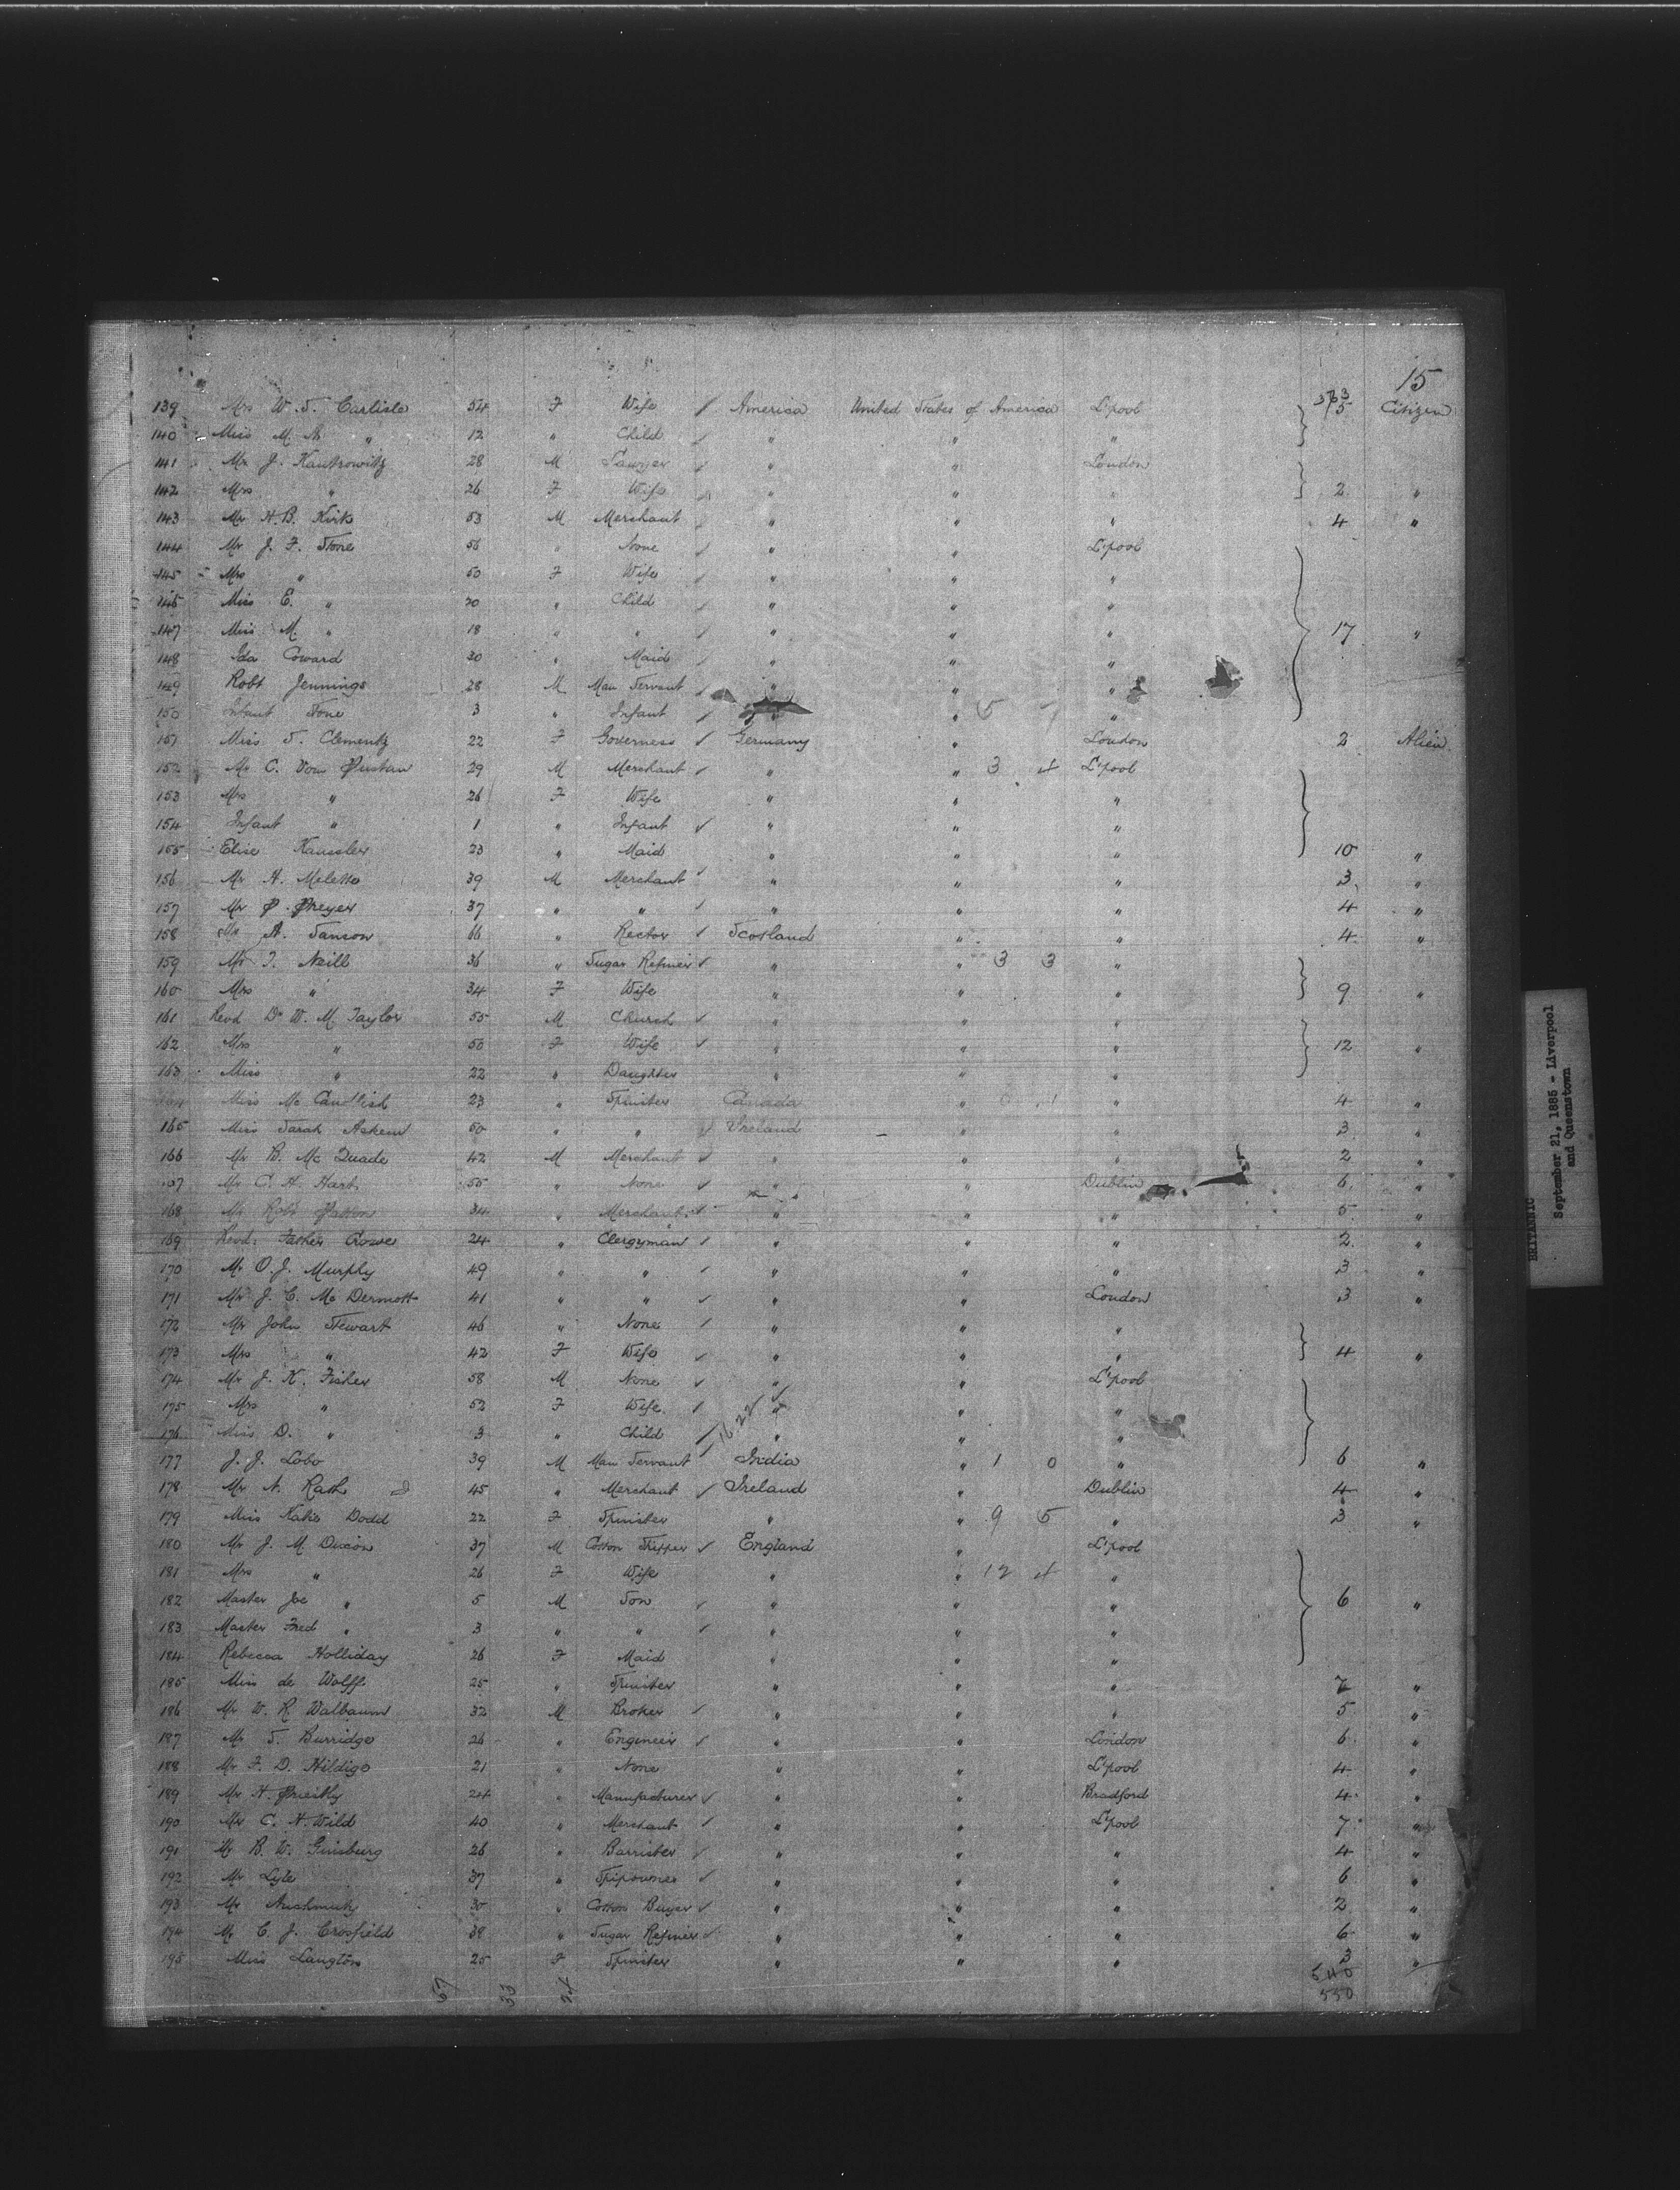 15
363
139 Mrs W. S. Carlisle 54 F Wife America United States of America L'pool 5 Citizen
140 Miss M. A. " 12 " Child " " "
141 Mr J. Kantrowitz 28 M Lawyer " " London
142 Mrs " 26 F Wife " " " 2 "
143 Mr H. B. Kirk 53 M Merchant " " " 4 "
144 Mr J. F. Stone 56 " None " " L'pool
145 Mrs " 50 F Wife " " "
146 Miss E. " 20 " Child " " "
147 Miss M. " 18 " " " " " 17 "
148 Ida Coward 30 " Maid " " "
149 Robt Jennings 28 M Man Servant " " "
150 Infant Stone 3 " Infant " 5 "
151 Miss S. Clementz 22 F Governess Germany " London 2 Alien
152 Mr C. Von Pustau 29 M Merchant " " 3 4 L'pool
153 Mrs " 26 F Wife " " "
154 Infant " 1 " Infant " " "
155 Elise Kaussler 23 " Maid " " " 10 "
156 Mr H. 39 M Merchant " " " 3 "
157 Mr P. Preyer 37 " " " " " 4 "
158 Mr A. Sanson 66 " Rector Scotland " " 4 "
159 Mr J. Neill 36 " Sugar Refiner " " 3 3 "
160 Mrs " 34 F Wife " " " 9 "
161 Revd Dr W. M. Taylor 55 M Church " " "
162 Mrs " 50 F Wife " " " 12 "
163 Miss " 22 " Daughter " " "
Miss Mc Candlish 23 " Spinster Canada " 0 1 " 4 "
165 Miss Sarah Askew 50 " " Ireland " " 3 "
166 Mr B. Mc Quade 42 M Merchant " " " 2 "
167 Mr C. H. Hart 55 " None " " Dublin 6 "
168 Mr Robt Patton 34 " Merchant " " " 5 "
169 Revd. Father Crowe 24 " Clergyman " " " 2 "
170 Mr O. J. Murphy 49 " " " " " 3 "
171 Mr J. C. Mc Dermott 41 " " " " London 3 "
172 Mr John Stewart 46 " None " " "
173 Mrs " 42 F Wife " " " 4 "
174 Mr J. K. Fisher 58 M None " " L'pool
175 Mrs " 52 F Wife " " "
176 Miss D. " 3 " Child 16.22 " " "
177 J. J. Lobo 39 M Man Servant India " 1 0 " 6 "
178 Mr N. Rath 45 " Merchant Ireland " Dublin 4 "
179 Miss Katie Dodd 22 F Spinster " " 9 5 " 3 "
180 Mr J. M. Dixon 37 M Cotton Shipper England " L'pool
181 Mrs " 26 F Wife " " 12 4 "
182 Master Joe " 5 M Son " " " 6 "
183 Master Fred " 3 " " " " "
184 Rebecca Holliday 26 F Maid " " "
185 Miss de Wolff 25 " Spinster " " " 7 "
186 Mr W. R. Walbaum 32 M Broker " " " 5 "
187 Mr S. Burridge 26 " Engineer " " London 6 "
188 Mr F. D. Hildige 21 " None " " L'pool 4 "
189 Mr H. Priestly 24 " Manufacturer " " Bradford 4 "
190 Mr C. H. Wild 40 " Merchant " " L'pool 7 "
191 Mr B. W. Ginsburg 26 " Barrister " " " 4 "
192 Mr Lyle 37 " Shipowner " " " 6 "
193 Mr 30 " Cotton Buyer " " " 2 "
194 Mr C. J. Crosfield 38 " Sugar Refiner " " " 6 "
195 Miss Langton 25 F Spinster " " " 3 "
57 33 24 540
550
BRITANNIC
September 21, 1885 - Liverpool
and Queenstown